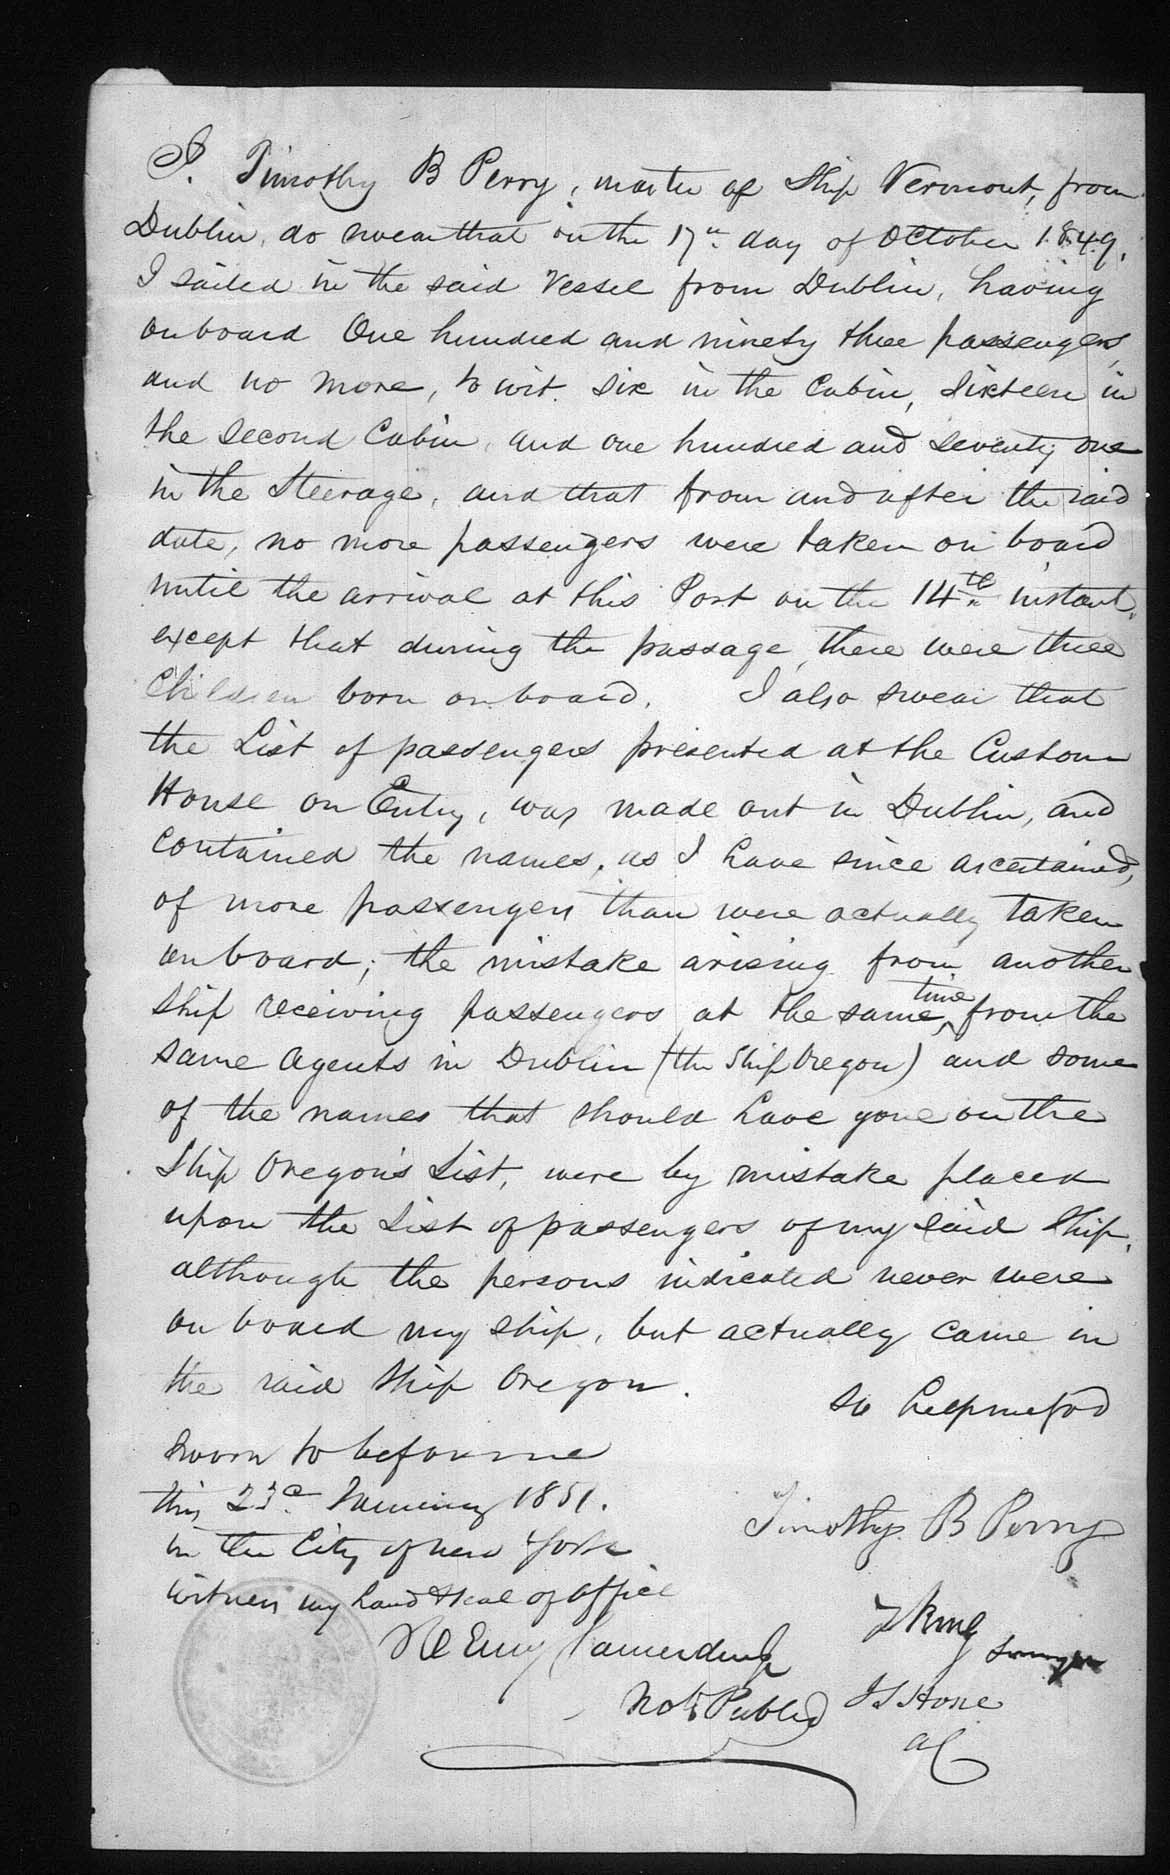 I. Timothy B Perry, master of Ship Vermont, from
Dublin, do swear that on the 17th day of October 1849,
I sailed in the said Vessel from Dublin, having
on board One hundred and ninety three passengers,
and no more, to wit. Six in the Cabin, Sixteen in
the Second Cabin, and one hundred and seventy one
in the Steerage, and that from and after the said
date, no more passengers were taken on board
until the arrival at this Port on the 14th instant,
except that during the passage, there were three
Children born on board. I also swear that
the List of passengers presented at the Custom
House on Entry, was made out in Dublin, and
contained the names, as I have since ascertained,
of more passengers than were actually taken
on board; the mistake arising from another
Ship receiving passengers at the same time, from the
same Agents in Dublin (the Ship Oregon) and some
of the names that should have gone on the
Ship Oregon's List, were by mistake placed
upon the List of passengers of my said Ship,
although the persons indicated never were
on board my ship, but actually came in
the said Ship Oregon.
So help me God
Sworn to before me
this 23d January 1851.
in the City of New York
witness my hand & seal of office
Timothy B Perry
Not Public